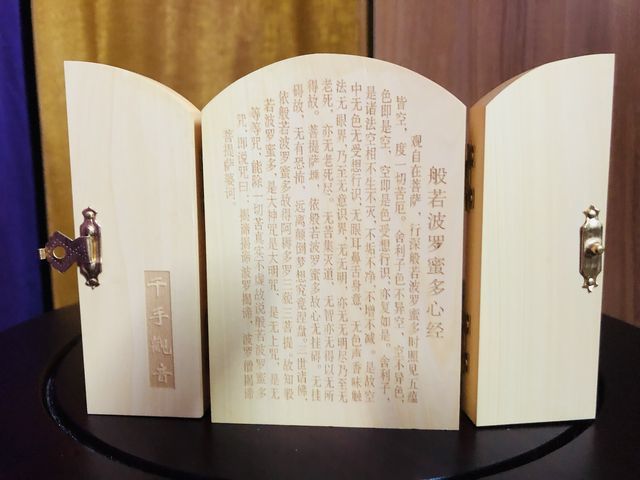 般若波罗蜜多心经
观自在菩萨，行深般若波罗蜜多时照见五蕴
皆空，度一切苦厄。舍利子色不异空，空不异色，
色即是空，空即是色受想行识，亦复如是。舍利子，
是诸法空相不生不灭，不垢不净，不增不减。是故空
中无色无受想行识，无眼耳鼻舌身意，无色声香味触
法无眼界，乃至无意识界，无无明，亦无无明尽乃至无
老死，亦无老死尽。无苦集灭道，无智亦无得以无所
得故。菩提萨埵，依般若波罗蜜多故心无挂碍。无挂
碍故，无有恐怖，远离颠倒梦想究竟涅盘。三世诸佛，
依般若波罗蜜多故得阿耨多罗三藐三菩提。故知般
若波罗蜜多，是大神咒是大明咒，是无上咒，是无
等等咒，能除一切苦真实不虚故说般若波罗蜜多
咒，即说咒曰：揭谛揭谛波罗揭谛，波罗僧揭谛
菩提萨婆诃。
千手觀音